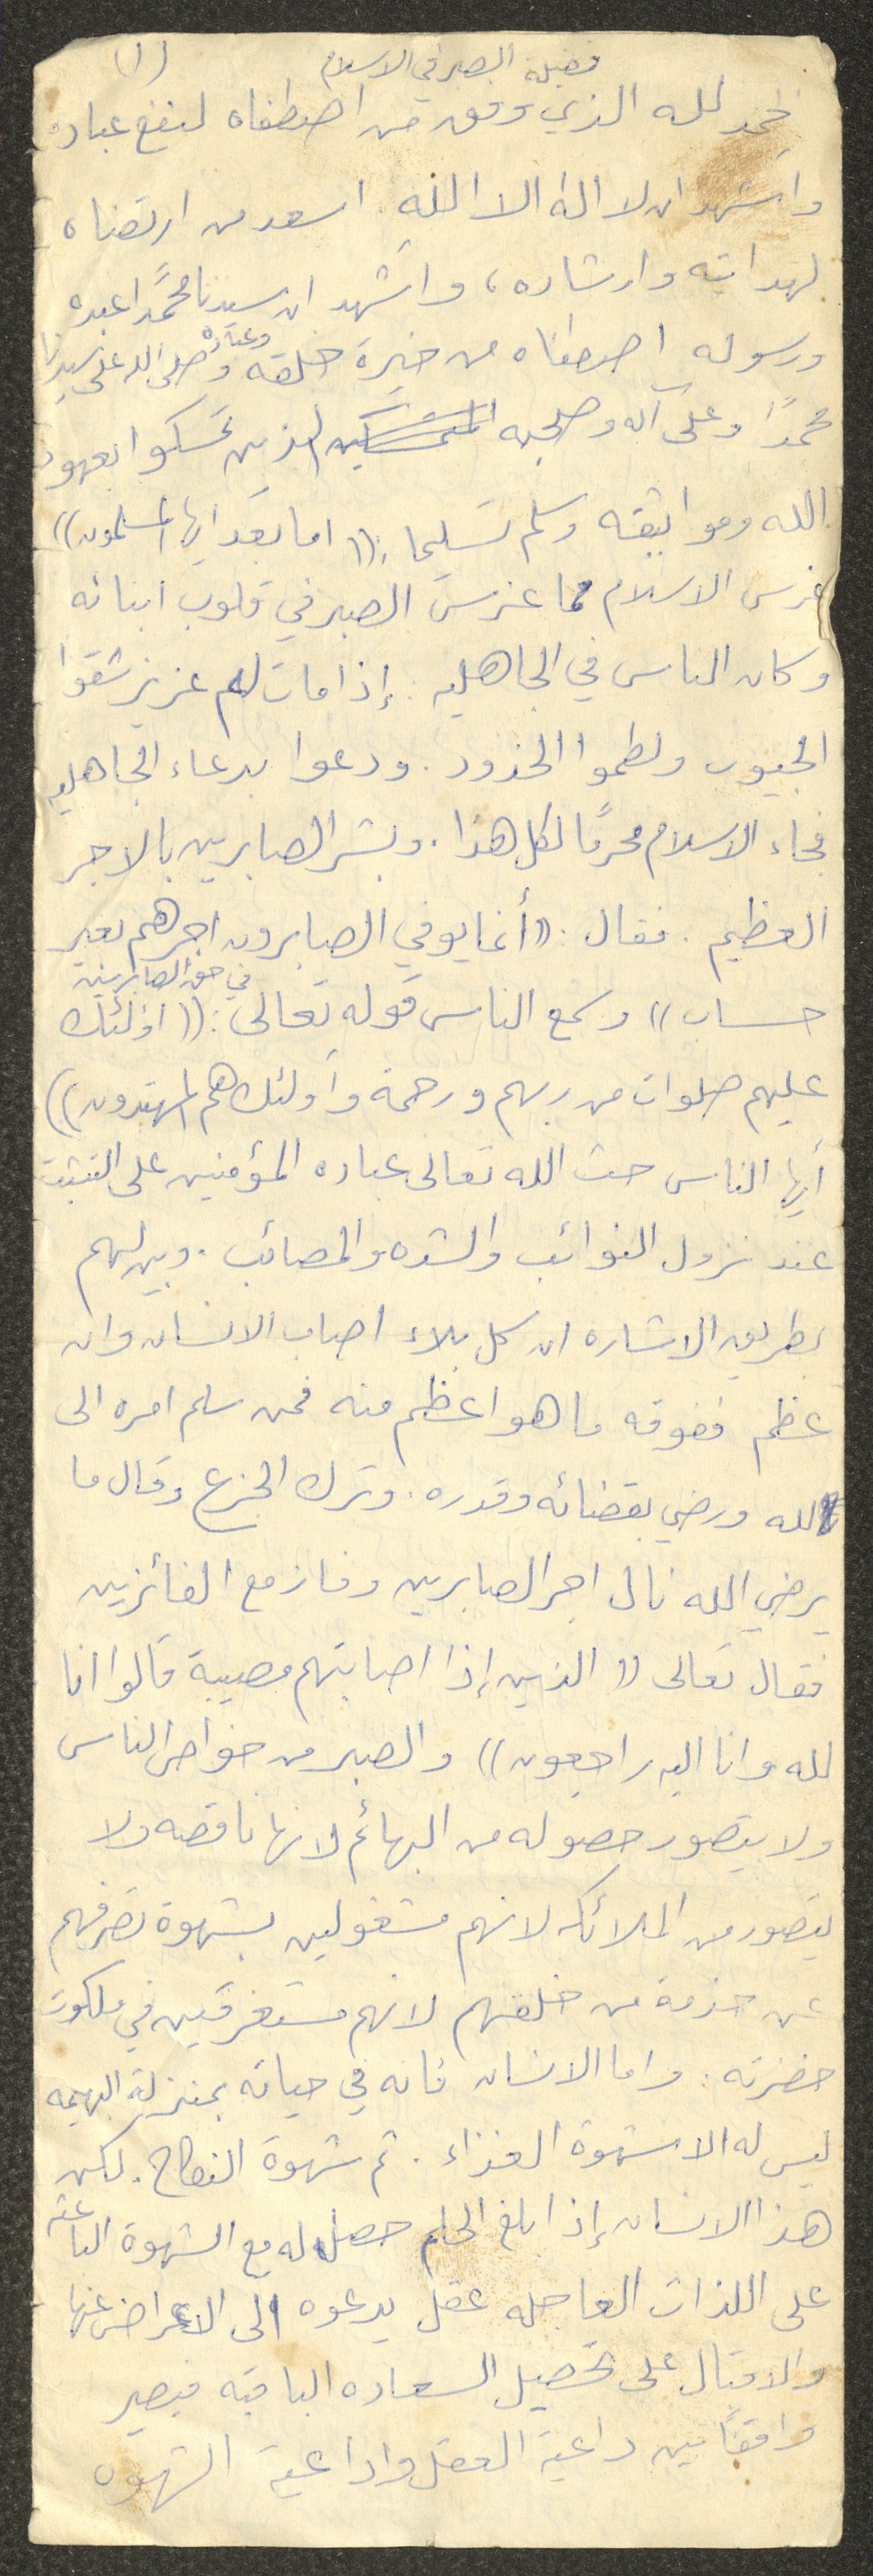 فضيلة الصبر في الاسلام (١)
الحمد لله الذي وفق من اصطفاه لنفع عباده
واشهد ان لا اله الا الله. اسعد من ارتضاه
لهدايته وارشاده، واشهد ان سيدنا محمداً عبده
ورسوله اصطفاه من خيرة خلقه وعباده وصلى الله على سيدنا
محمداً وعلى آله وصحبه الذين تمسكوا بعهود
الله ومواثيقه وسلم تسليما: ((اما بعد ايها المسلمون))
غرس الاسلام مما غرس الصبر في قلوب ابنائه
وكان الناس في الجاهليه: إذا مات لهم عزيز شقوا
الجيوب ولطموا الخدود. ودعوا بدعاء الجاهليه
فجاء الاسلام محرمًا لكل هذا. وبشر الصابرين بالاجر
العظيم. فقال: ((أنما يوفي الصابرون اجرهم بغير
حساب)) وسمع الناس قوله تعالى في حق الصابرين: ((اولئك
عليهم صلوات من ربهم ورحمة وأولئك هم المهتدون))
أيها الناس حث الله تعالى عباده المؤمنين على التثبت
عند نزول النوائب والشده والمصائب. وبين لهم
بطريق الاشاره ان كل بلاء اصاب الانسان وان
عظم ففوقه ما هو اعظم منه فمن سلم امره الى
الله ورضي بقضائه وقدره. وترك الجزع وقال ما
يرضي الله نال اجر الصابرين وفاز مع الفائزين
فقال تعالى ((الذين إذا اصابتهم مصيبة قالوا انا
لله وانا اليه راجعون)) والصبر من خواص الناس
ولا يتصور حصوله من البهائم لانها ناقصه ولا
يتصور من الملائكه لانهم مشغولين بشهوة تصرفهم
عن خدمة من خلقهم لانهم مستغرقين في ملكوت
حضرته: واما الانسان فانه في حياته بمنزلة البهيمه
ليس له الا شهوة الغذاء. ثم شهوة النكاح. لكن
هذا الانسان إذا بلغ الحلم حصل له مع الشهوة الباعثه
على اللذات العاجله عقل يدعوه الى الاعراض عنها
والاقبال على تحصيل السعاده الباقيه فيصير
واقفاً بين داعية العقل واداعية الشهوه